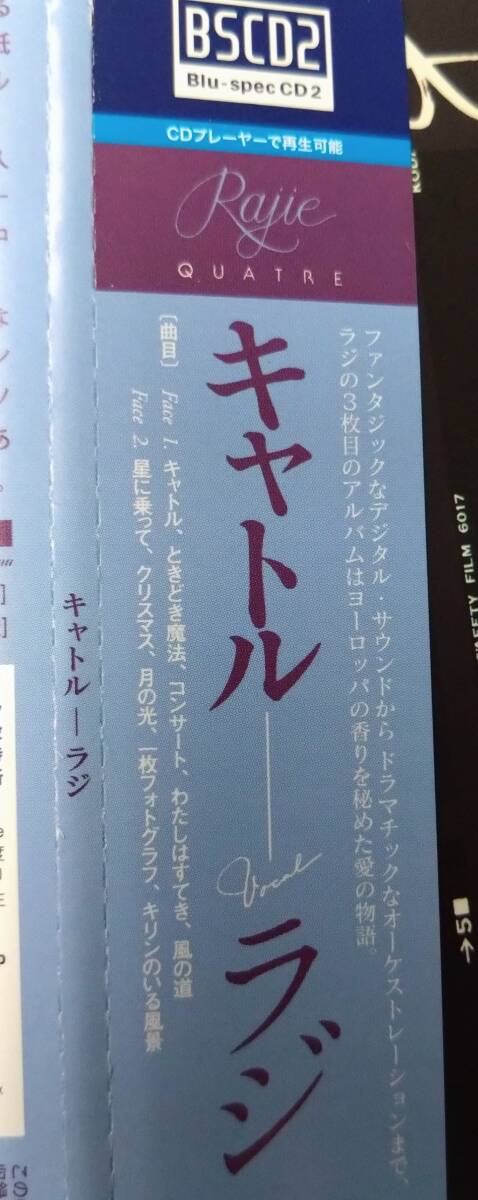 BSCD2
Blu-spec CD2
CDプレーヤーで再生可能
Rajie
QUATRE
ファンタジックなデジタル・サウンドから ドラマチックなオーケストレーションまで、
ラジの3枚目のアルバムはヨーロッパの香りを秘めた愛の物語。
キャトル——ラジ
Vocal
〔曲目〕
Face 1. キャトル、ときどき魔法、コンサート、わたしはすてき、風の道
Face 2. 星に乗って、クリスマス、月の光、一枚フォトグラフ、キリンのいる風景
キャトル—ラジ
FILM 6017
→5